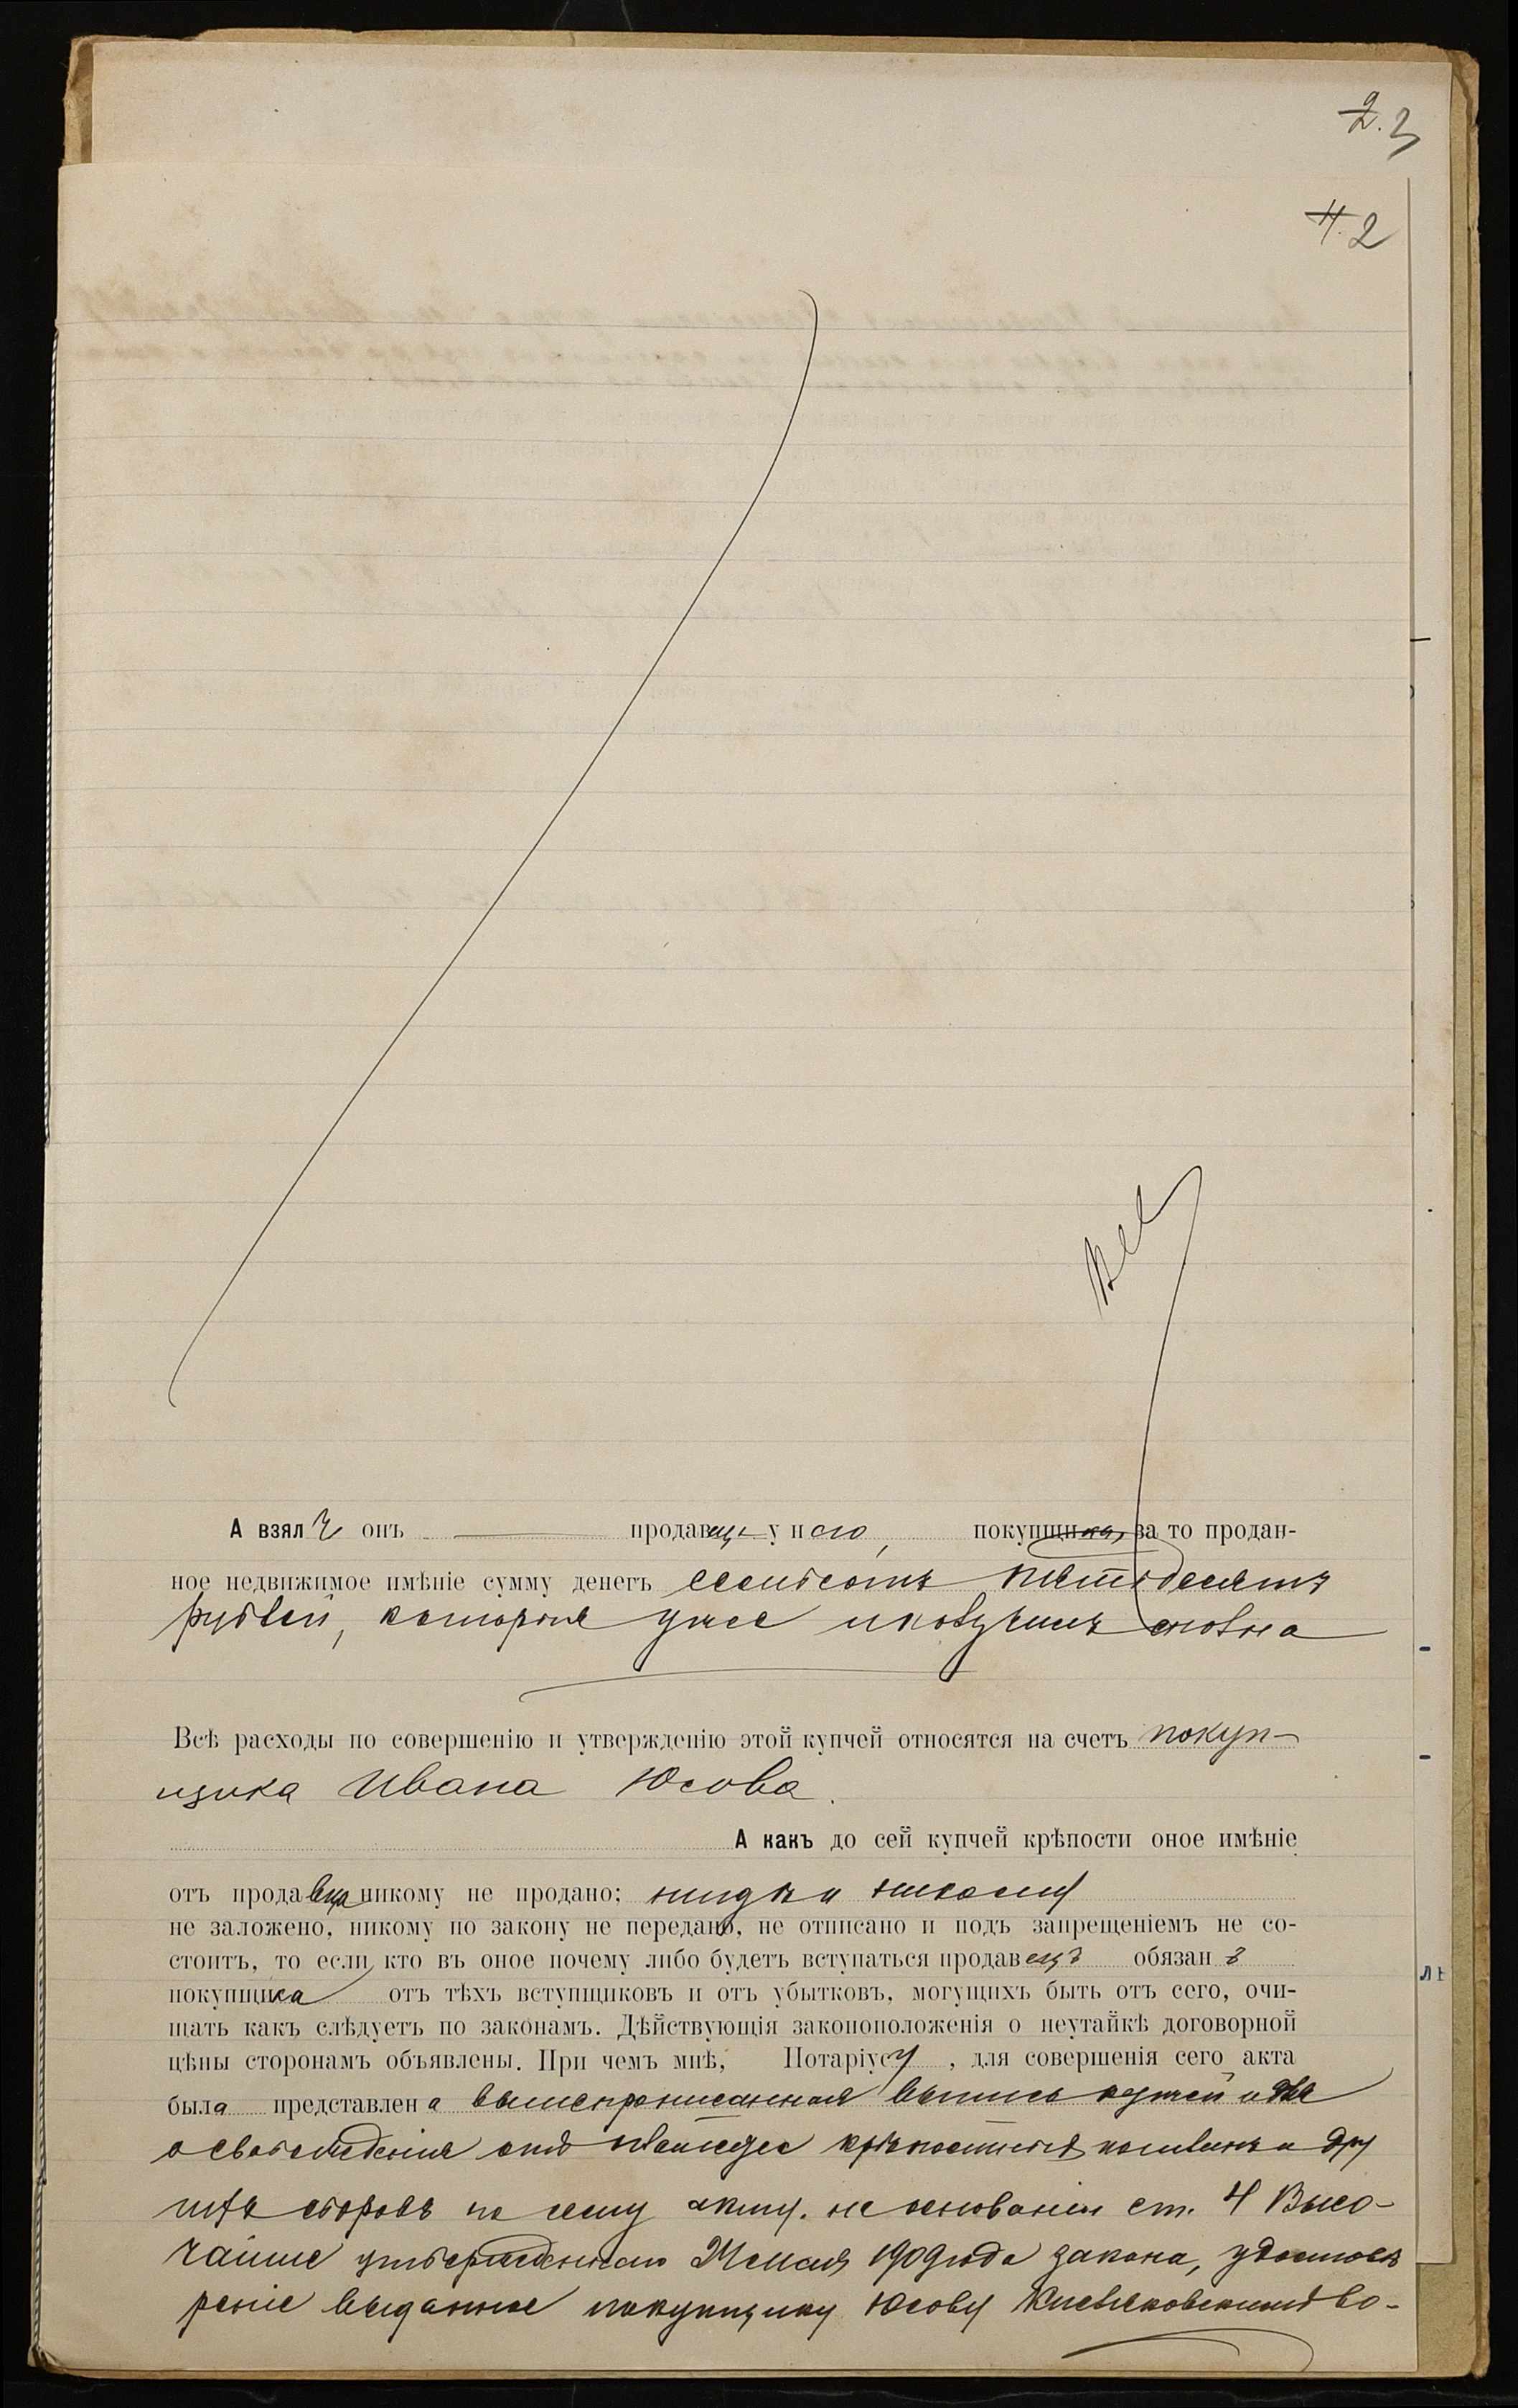 2. 3
4. 2
А взялъ онъ продавецъ у него, покупщика, за то продан-
ное недвижимое имѣніе сумму денегъ семьсотъ пятьдесятъ
рублей, которыя уже и получилъ сполна
Всѣ расходы по совершенію и утвержденію этой купчей относятся на счетъ покуп-
щика Ивана Юсова.
А какъ до сей купчей крѣпости оное имѣніе
отъ продавца никому не продано; нигдѣ и никому
не заложено, никому по закону не передано, не отписано и подъ запрещеніемъ не со-
стоитъ, то если кто въ оное почему либо будетъ вступаться продавецъ обязанъ
покупщика отъ тѣхъ вступщиковъ и отъ убытковъ, могущихъ быть отъ сего, очи-
щать какъ слѣдуетъ по законамъ. Дѣйствующія законоположенія о неутайкѣ договорной
цѣны сторонамъ объявлены. При чемъ мнѣ, Нотаріусу, для совершенія сего акта
была представлена вышепрописанная выпись и для
освобожденія отъ платежа крѣпостныхъ пошлинъ и дру
гихъ сборовъ по сему акту. на основаніи ст. 4 Высо-
чайше утвержденнаго 1909 года закона, удостовѣ
реніе выданное покупщику Юсову во-